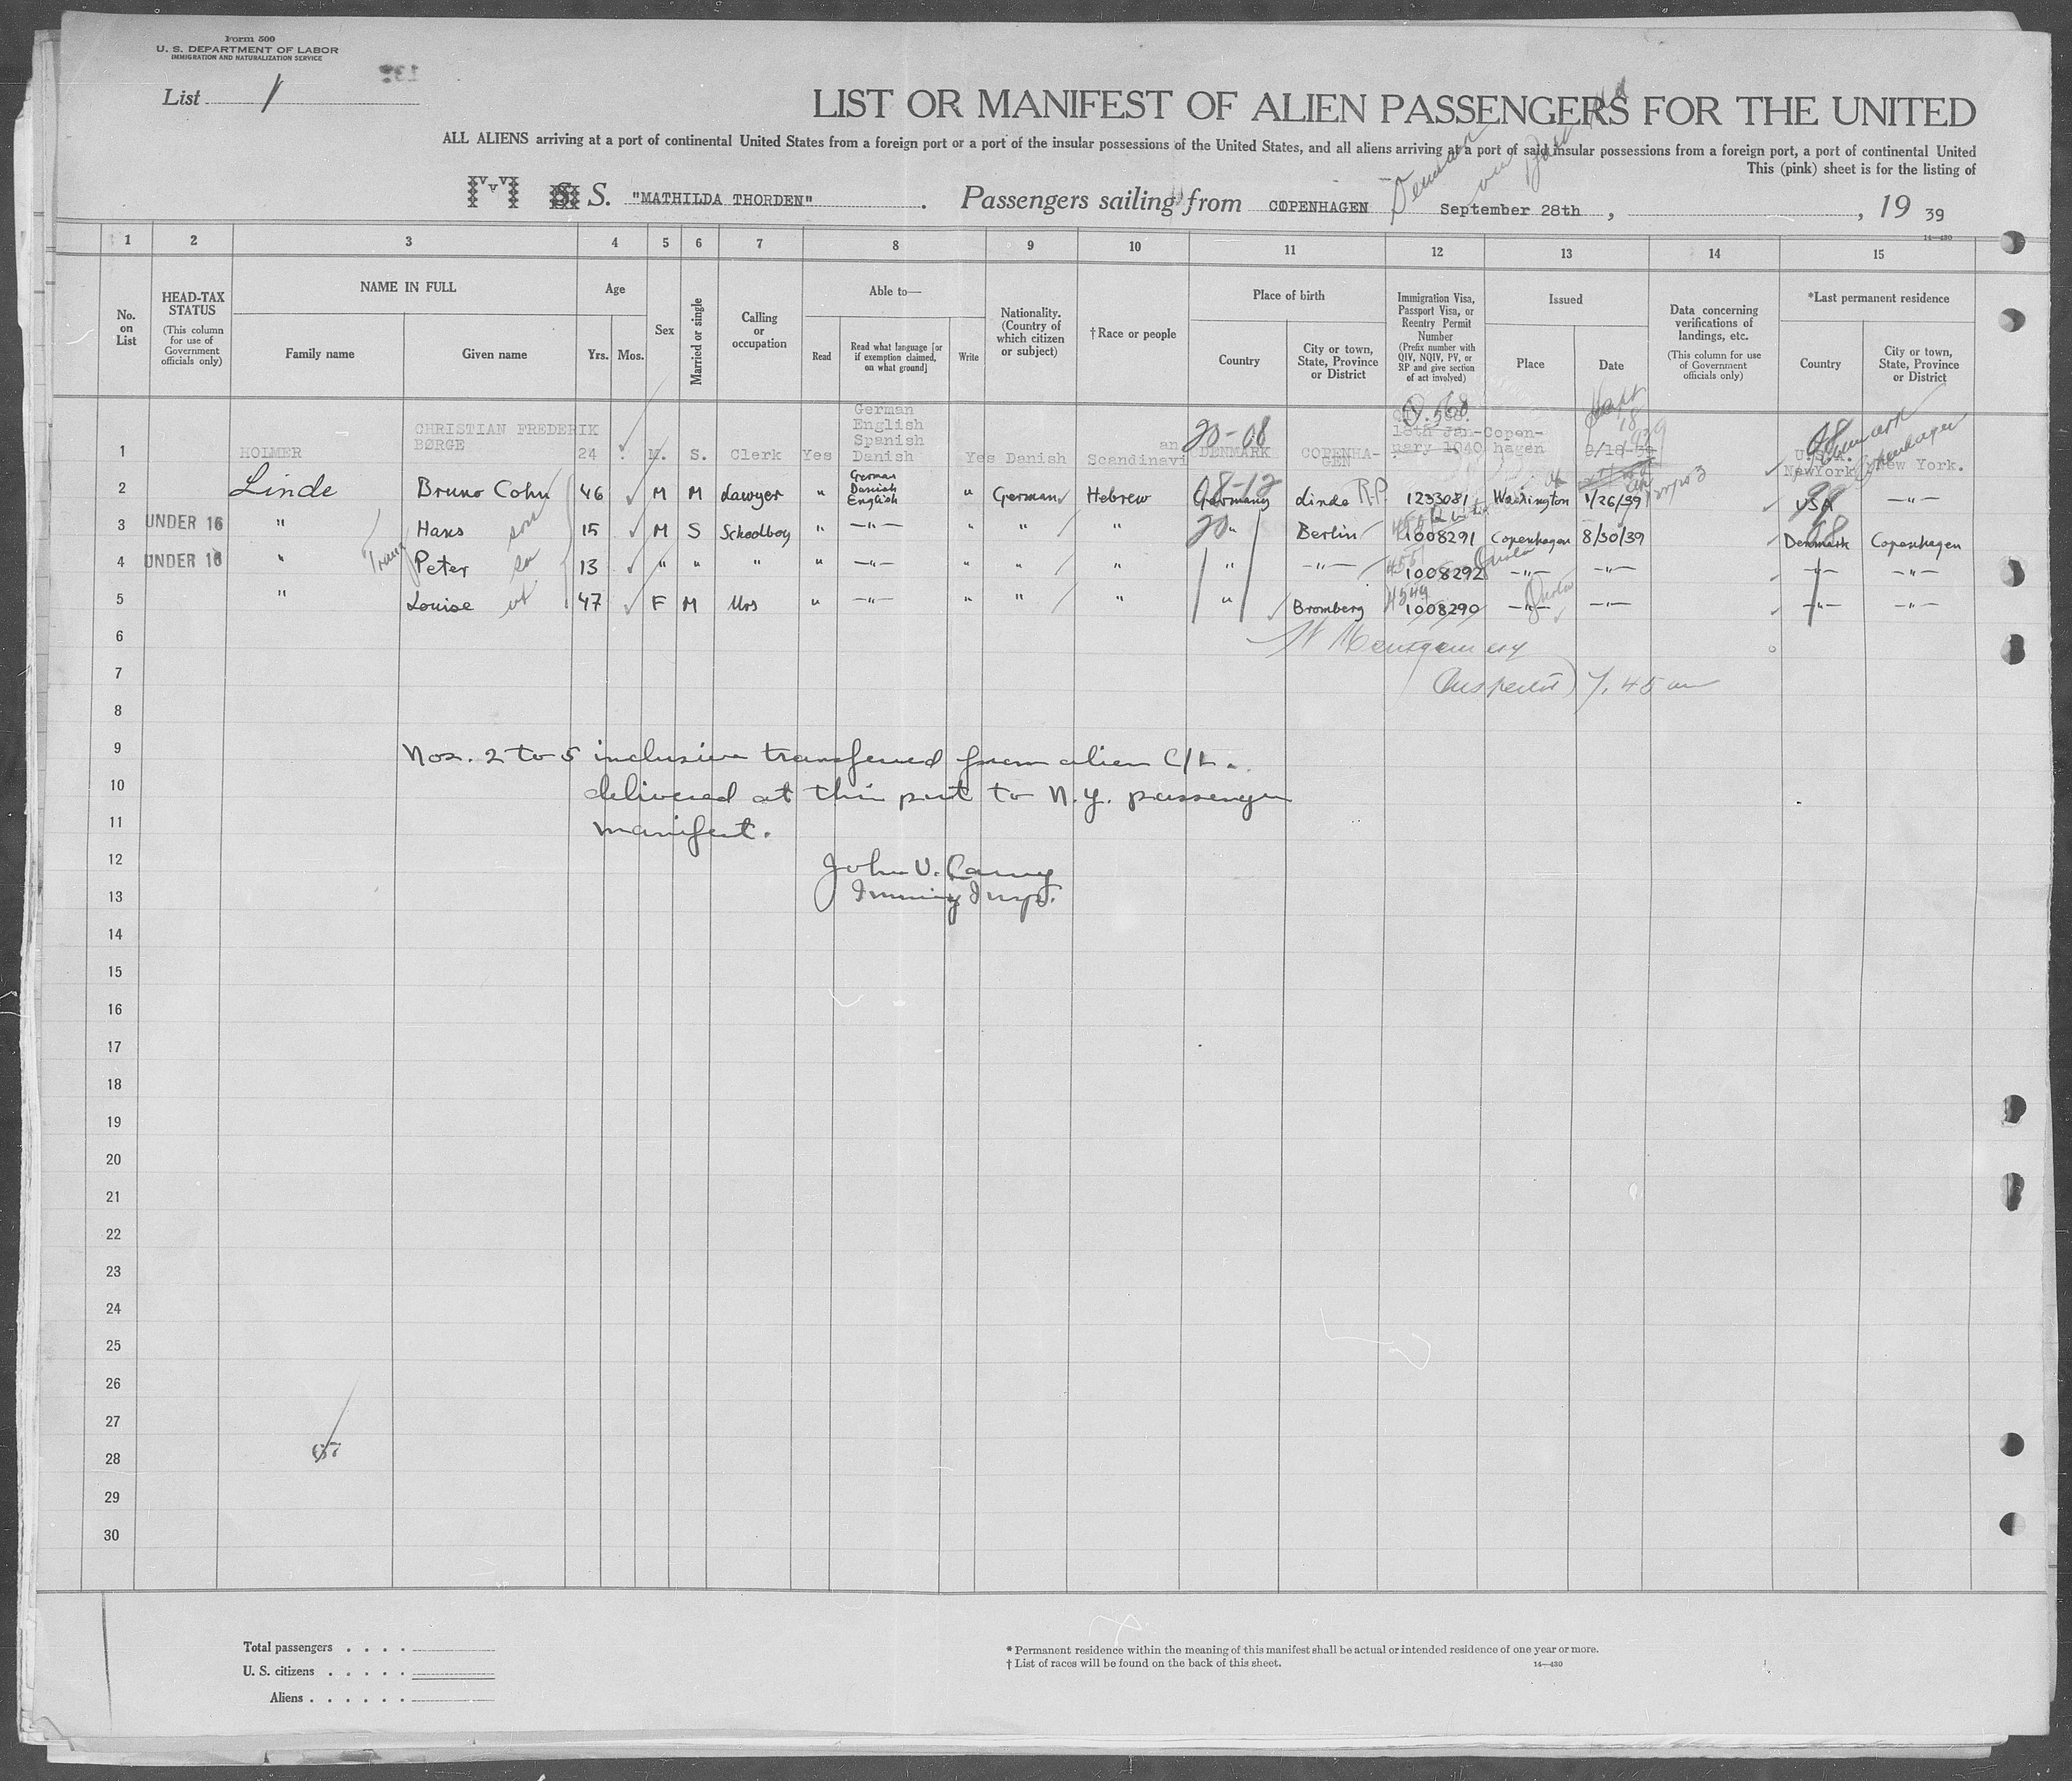 Form 500
U. S. DEPARTMENT OF LABOR
IMMIGRATION AND NATURALIZATION SERVICE
List 1
LIST OR MANIFEST OF ALIEN PASSENGERS FOR THE UNITED
ALL ALIENS arriving at a port of continental United States from a foreign port or a port of the insular possessions of the United States, and all aliens arriving at a port of said insular possessions from a foreign port, a port of continental United
This (pink) sheet is for the listing of
S. "MATHILDA THORDEN". Passengers sailing from COPENHAGEN September 28th, , 19 39
14—430
1 2 3 4 5 6 7 8 9 10 11 12 13 14 15
No. on List
HEAD-TAX STATUS
(This column for use of Government officials only)
NAME IN FULL
Family name Given name
Age
Yrs. Mos.
Sex
Married or single
Calling or occupation
Able to—
Read
Read what language [or if exemption claimed, on what ground]
Write
Nationality. (Country of which citizen or subject)
† Race or people
Place of birth
Country
City or town, State, Province or District
Immigration Visa, Passport Visa, or Reentry Permit Number
(Prefix number with QIV, NQIV, PV, or RP and give section of act involved)
Issued
Place Date
Data concerning verifications of landings, etc.
(This column for use of Government officials only)
*Last permanent residence
Country
City or town, State, Province or District
1 HOLMER CHRISTIAN FREDERIK BØRGE 24 M. S. Clerk Yes German English Spanish Danish Yes Danish Scandinavian 20-08 DENMARK COPENHAGEN Copenhagen New York.
2 Linde Bruno Cohn 46 M M Lawyer " German Danish English " German Hebrew Germany Linde R.P. 1233081 Washington 1/26/39 USA —"—
3 UNDER 16 " Hans son 15 M S Schoolboy " —"— " " " " Berlin 1008291 Copenhagen 8/30/39 Denmark Copenhagen
4 UNDER 16 " Peter 13 " " " " —"— " " " " —"— 1008292 —"— —"— —"— —"—
5 " Louise 47 F M Mrs " —"— " " " " Bromberg 1008290 —"— —"— —"— —"—
6
7 7.45 am
8
9 Nos. 2 to 5 inclusive transferred from alien C/L.
10 delivered at this port to N.Y. passenger
11 manifest.
12 John V.
13 Immig Insp.
14
15
16
17
18
19
20
21
22
23
24
25
26
27
28
29
30
Total passengers . . . .
U. S. citizens . . . . .
Aliens . . . . . .
* Permanent residence within the meaning of this manifest shall be actual or intended residence of one year or more.
† List of races will be found on the back of this sheet.
14—430